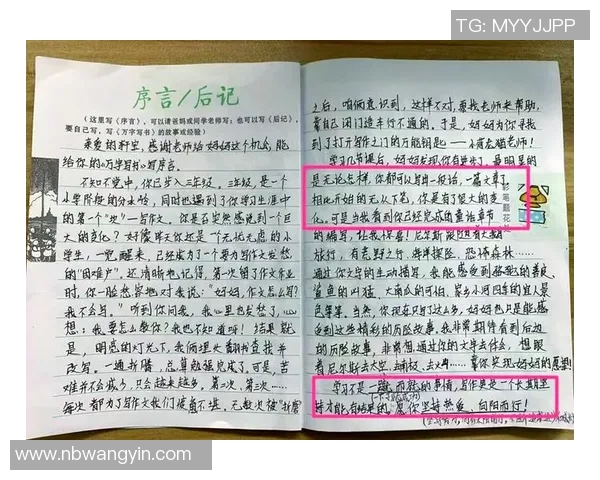 TG: MYYJJPP
序言/后记
(这里写《序言》,可以请爸妈或同学老师写;也可以写《后记》,
要自己写,写《万字写书》的故事或经验)
亲爱的轩宝,感谢老师给妈妈这个机会,能
给你的《万字写书》写序言。
不知不觉中,你已步入三年级。三年级,是一个
小学阶段的分水岭,同时也遇到了你学习生涯中
的第一个"坎"—写作文。你是否突然感觉到一个巨
大的变化?好像昨天你还是一个无忧无虑的小
学生,一觉醒来,已经成为了一个要为写作文发愁
的"困难户"。还清晰地记得,第一次留了作文作业
时,你一脸愁容地对我说:"妈妈,作文怎么写?
我不会写。"听到你问我,我心里也发愁了,
想,我要怎么教你?我也不知道呀!结果就
是,明亮的灯光下,我俩埋头翻书查找并
改写。一通折腾,总算勉强完成了,可是,苦
难并不会减少,只会越来越多。第二次、第三次……
每次都为了写作文我们疲惫不堪。无数次被"折磨"
之后,咱俩意识到,这样不对,要找老师来帮助,
靠自己闭门造车行不通的。于是,妈妈为你寻找
到了打开写作之门的万能钥匙——小荷老猫老师!
学习几节课后,妈妈发现你有进步了。最明显的
是无论怎样,你都可以写出一段话,一篇文章了,
相比开始的无从下笔,你是有了很大的变
化。可是当我看到你已经完成的童话章节
的编写,让我惊喜!尼尔斯跟随着大鹅
旅行,有荒野之行、海洋探险、恐怖森林……
通过你文字的生动描写,我能感受到
鲨鱼的凶猛、大南瓜的可怕、家乡小河四季的宜人景
色等等。当然,你现在只写了这么多,妈妈也只是能感
受到这些精彩的历险故事,我非常期待看到后边
的历险故事,非常想通过你的文字去体会、想跟
着尼尔斯去太空、去
学习不是一蹴而就的事情,写作更是一个长期坚
持才能有结果的。愿你坚持热爱,向阳而行!
彩笔题花处
www.nbwangyin.com